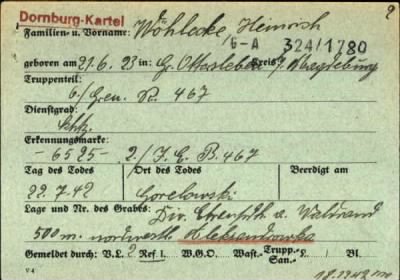 Dornburg-Kartei
2
Familien- u. Vorname: Wöhlecke Heinrich
6-A 324/1780
geboren am 21.6.23 in: Gr. Ottersleben Kreis Magdeburg
Truppenteil:
6./Gren. R. 467
Dienstgrad:
Schtz.
Erkennungsmarke:
-6525- 2./I.E.B. 467
Tag des Todes Ort des Todes Beerdigt am
22.7.42 Gorelowski
Lage und Nr. des Grabes: Div. Ehrenfrdh. a. Waldrand
500 m. nordwestl. Aleksandrowka
Gemeldet durch: V.L. ? Ref. I. W.G.O. Wast.- Trupp.- San.- L./ Bl.
V 4